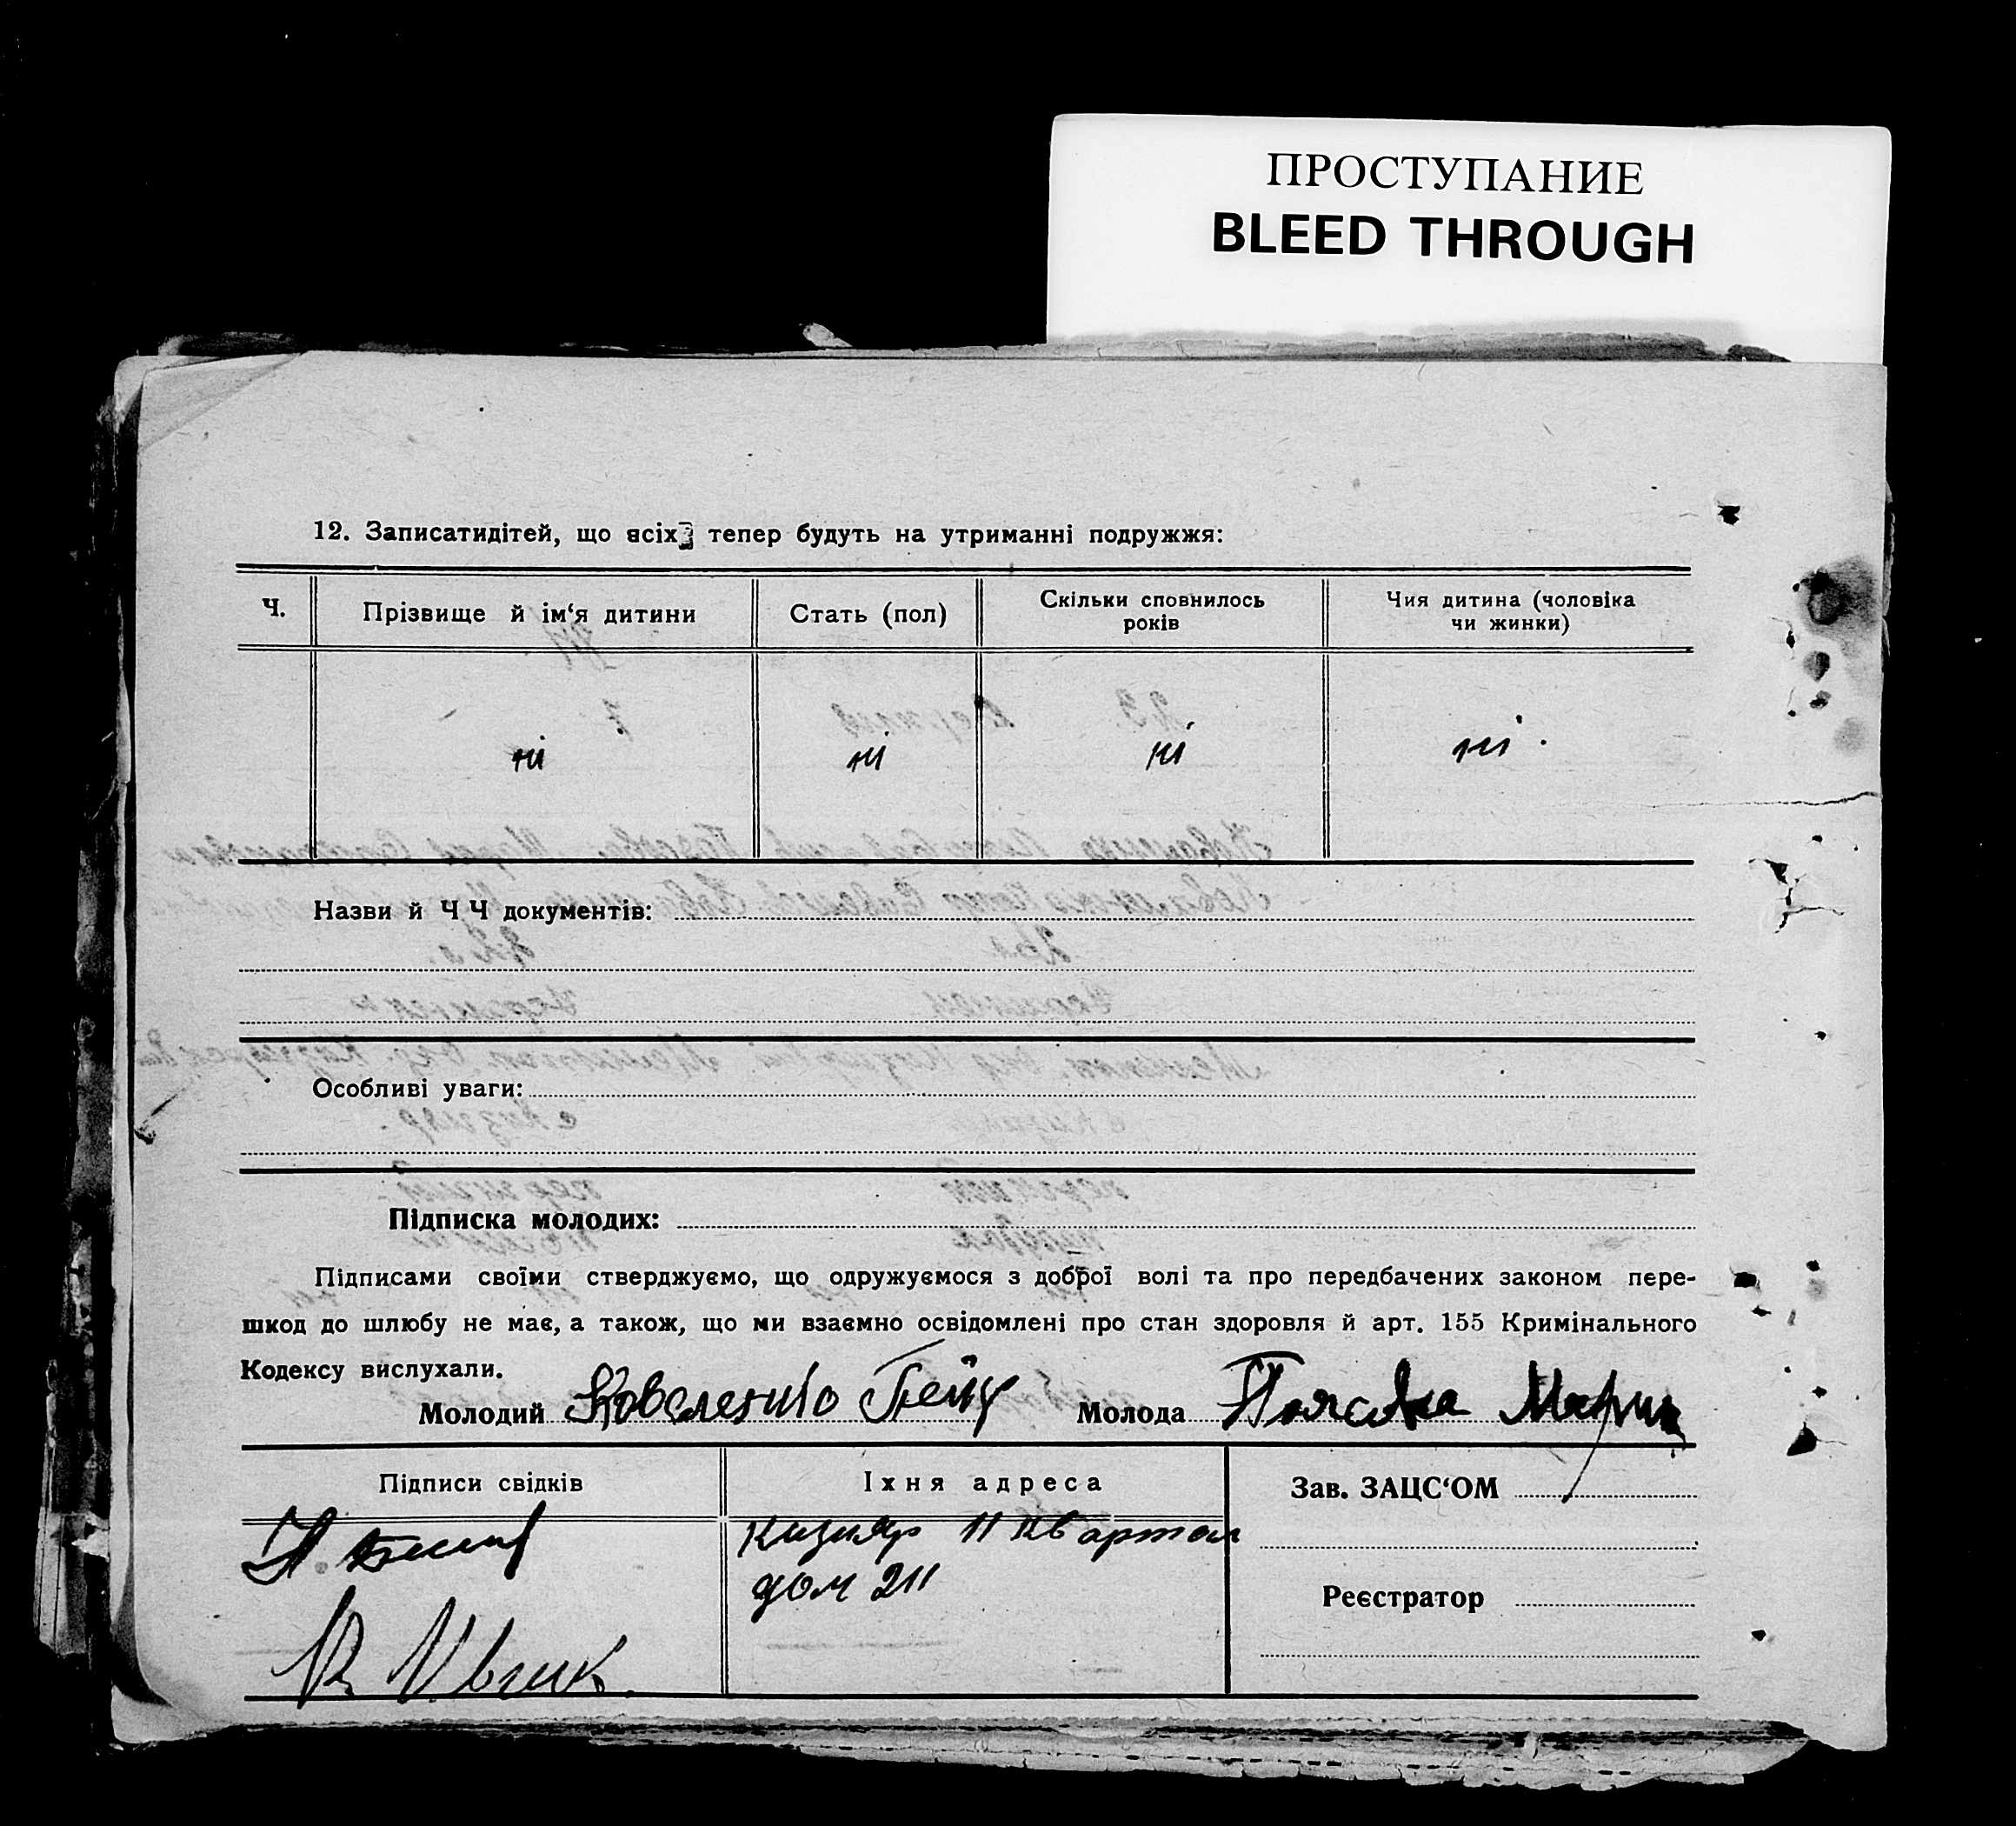 ПРОСТУПАНИЕ
BLEED THROUGH
12. Записатидітей, що всіх тепер будуть на утриманні подружжя:
Ч. Прізвище й ім‘я дитини Стать (пол) Скільки сповнилось років Чия дитина (чоловіка чи жинки)
ні ні ні ні.
Назви й Ч Ч документів:
Особливі уваги:
Підписка молодих:
Підписами своїми стверджуємо, що одружуємося з доброї волі та про передбачених законом пере-
шкод до шлюбу не має, а також, що ми взаємно освідомлені про стан здоровля й арт. 155 Кримінального
Кодексу вислухали.
Молодий Коваленко Молода Мария
Підписи свідків Їхня адреса Зав. ЗАЦС‘ОМ
Кизияр 11 квартал
дом 211
Реєстратор